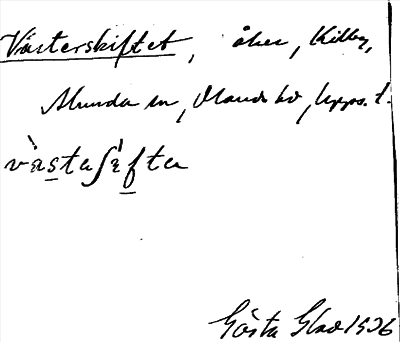 Västerskiftet, åker, Kilby,
Alunda sn, Olands hd, Upps. l.
västaʃefta
Gösta Glad 1936